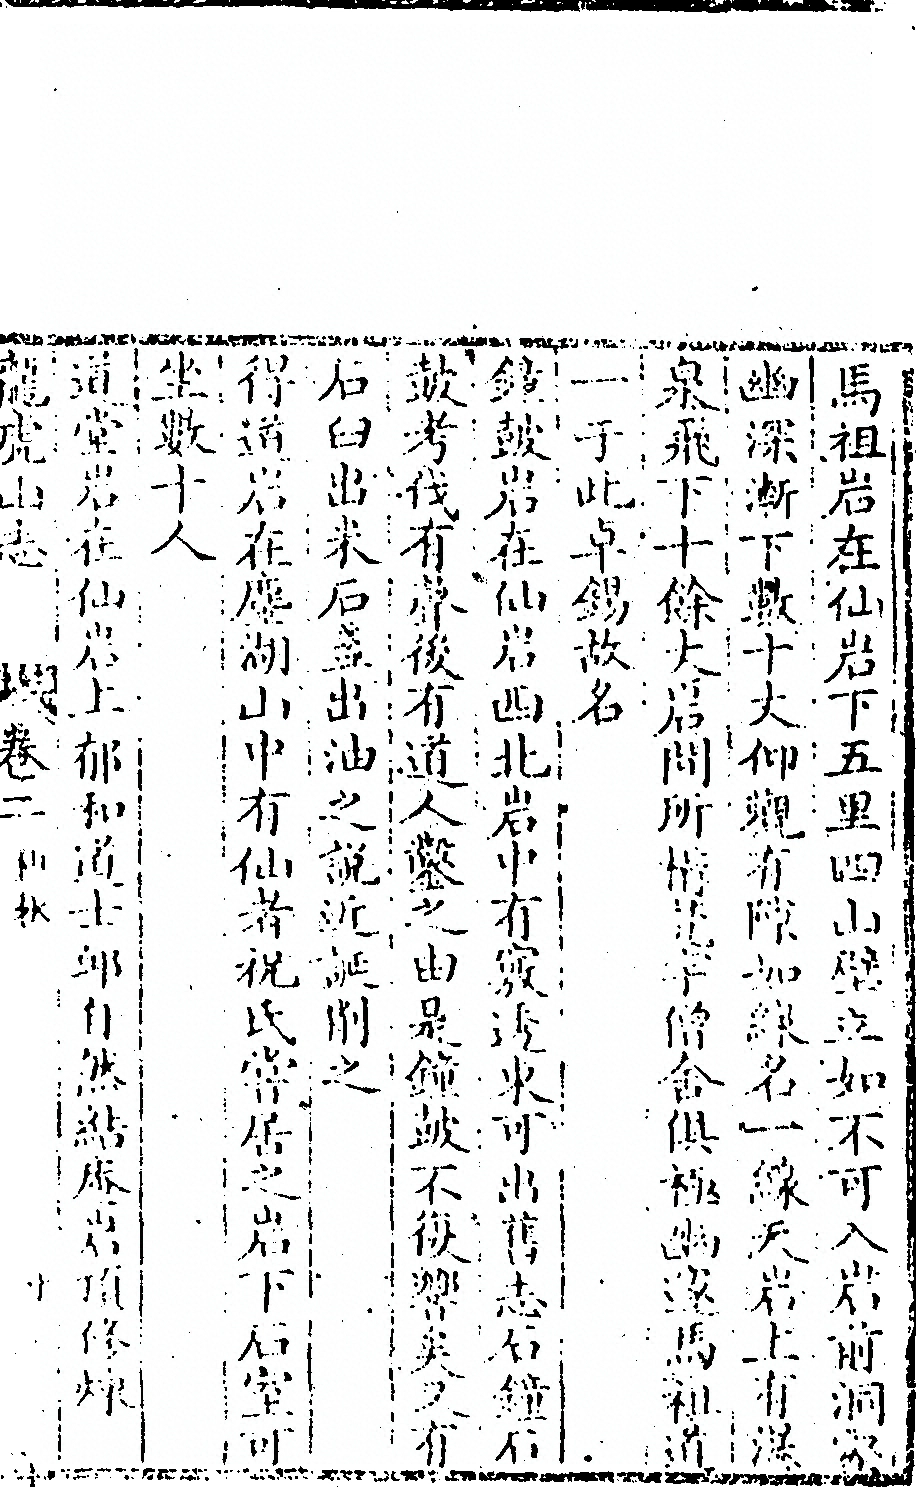 馬祖岩在仙岩下五里四山壁立如不可入岩前洞
幽深漸下數十丈仰觀有隙如線名一線天岩上有瀑
泉飛下十餘丈岩間所構梵宇僧舍俱極幽邃馬祖道
一于此卓錫故名
鐘鼓岩在仙岩西北岩中有竅透東可出舊志石鐘石
鼓考伐有聲後有道人鑿之由是鐘鼓不復響矣又有
石臼出米石盞出油之說近誕削之
得道岩在塵湖山中有仙者祝氏嘗居之岩下石室可
坐數十人
道堂岩在仙岩上郁和道士邱自然結庵岩頂修煉
龍虎山志 卷二 十